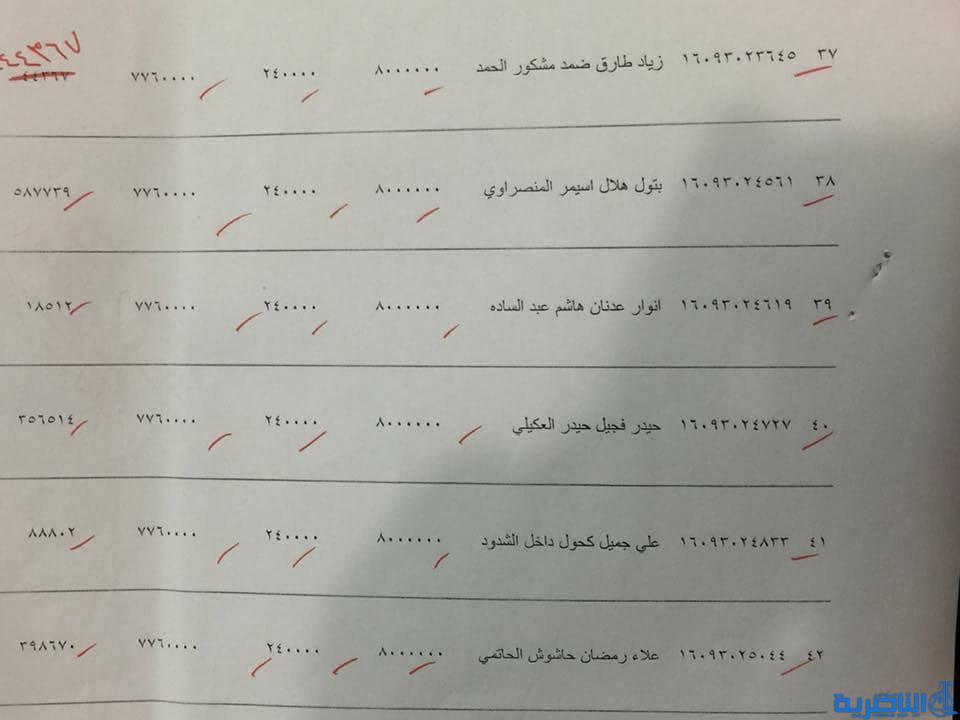 ٣٧ ١٦٠٩٣٠٢٣٦٤٥ زياد طارق ضمد مشكور الحمد ٨٠٠٠٠٠٠ ٢٤٠٠٠٠ ٧٧٦٠٠٠٠ ٤٤٣٦٧ ٤٤٣٦٧
٣٨ ١٦٠٩٣٠٢٤٥٦١ بتول هلال اسيمر المنصراوي ٨٠٠٠٠٠٠ ٢٤٠٠٠٠ ٧٧٦٠٠٠٠ ٥٨٧٧٣٩
٣٩ ١٦٠٩٣٠٢٤٦١٩ انوار عدنان هاشم عبد الساده ٨٠٠٠٠٠٠ ٢٤٠٠٠٠ ٧٧٦٠٠٠٠ ١٨٥١٢
٤٠ ١٦٠٩٣٠٢٤٧٢٧ حيدر فجيل حيدر العكيلي ٨٠٠٠٠٠٠ ٢٤٠٠٠٠ ٧٧٦٠٠٠٠ ٣٥٦٥١٤
٤١ ١٦٠٩٣٠٢٤٨٣٣ علي جميل كحول داخل الشدود ٨٠٠٠٠٠٠ ٢٤٠٠٠٠ ٧٧٦٠٠٠٠ ٨٨٨٠٢
٤٢ ١٦٠٩٣٠٢٥٠٤٤ علاء رمضان حاشوش الحاتمي ٨٠٠٠٠٠٠ ٢٤٠٠٠٠ ٧٧٦٠٠٠٠ ٣٩٨٦٧٠
الناصرية